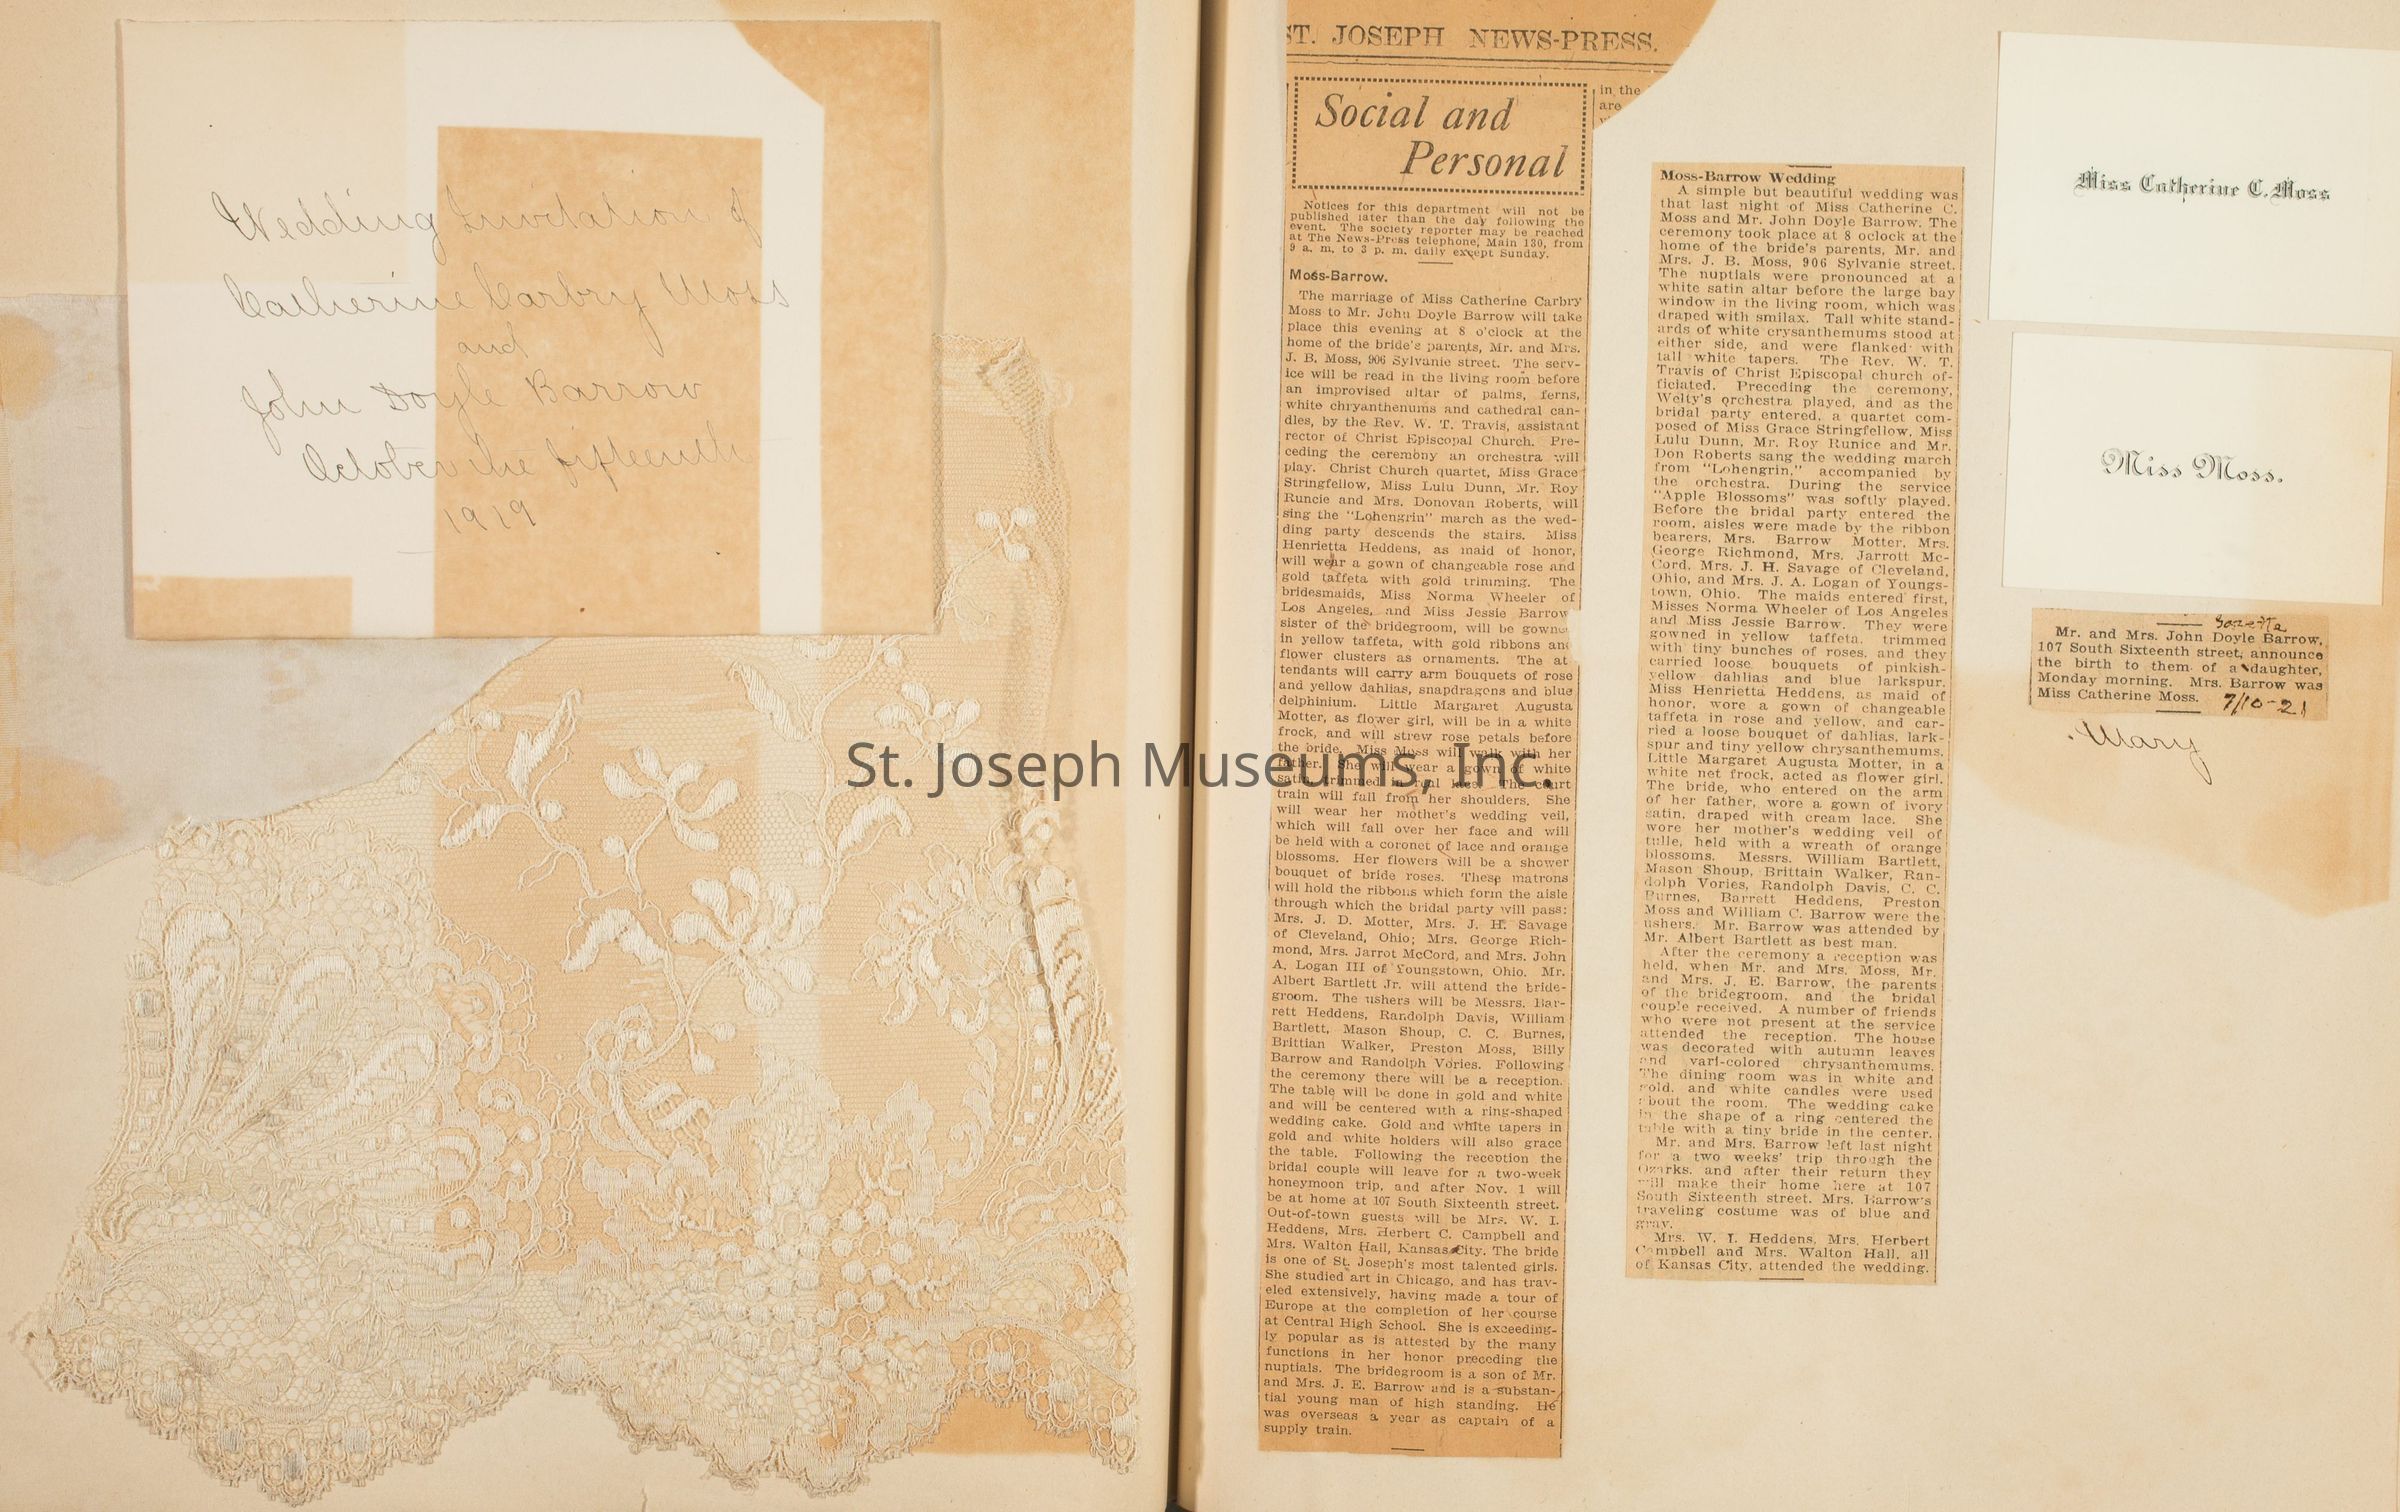 Wedding Invitation of
Catherine Carbry Moss
and
John Doyle Barrow
October the fifteenth
1919
ST. JOSEPH NEWS-PRESS.
Social and
Personal
in the
are
Notices for this department will not be
published later than the day following the
event. The society reporter may be reached
at The News-Press telephone, Main 130, from
9 a. m. to 3 p. m. daily except Sunday.
Moss-Barrow.
The marriage of Miss Catherine Carbry
Moss to Mr. John Doyle Barrow will take
place this evening at 8 o'clock at the
home of the bride's parents, Mr. and Mrs.
J. B. Moss, 906 Sylvanie street. The serv-
ice will be read in the living room before
an improvised altar of palms, ferns,
white chryanthenums and cathedral can-
dles, by the Rev. W. T. Travis, assistant
rector of Christ Episcopal Church. Pre-
ceding the ceremony an orchestra will
play. Christ Church quartet, Miss Grace
Stringfellow, Miss Lulu Dunn, Mr. Roy
Runcie and Mrs. Donovan Roberts, will
sing the "Lohengrin" march as the wed-
ding party descends the stairs. Miss
Henrietta Heddens, as maid of honor,
will wear a gown of changeable rose and
gold taffeta with gold trimming. The
bridesmaids, Miss Norma Wheeler of
Los Angeles, and Miss Jessie Barrow
sister of the bridegroom, will be gowne
in yellow taffeta, with gold ribbons and
flower clusters as ornaments. The at
tendants will carry arm bouquets of rose
and yellow dahlias, snapdragons and blue
delphinium. Little Margaret Augusta
Motter, as flower girl, will be in a white
frock, and will strew rose petals before
the bride. Miss Moss will walk with her
father. She will wear a gown of white
satin trimmed in real lace. The court
train will fall from her shoulders. She
will wear her mother's wedding veil,
which will fall over her face and will
be held with a coronet of lace and orange
blossoms. Her flowers will be a shower
bouquet of bride roses. These matrons
will hold the ribbons which form the aisle
through which the bridal party will pass:
Mrs. J. D. Motter, Mrs. J. H. Savage
of Cleveland, Ohio; Mrs. George Rich-
mond, Mrs. Jarrot McCord, and Mrs. John
A. Logan III of Youngstown, Ohio. Mr.
Albert Bartlett Jr. will attend the bride-
groom. The ushers will be Messrs. Bar-
rett Heddens, Randolph Davis, William
Bartlett, Mason Shoup, C. C. Burnes,
Brittian Walker, Preston Moss, Billy
Barrow and Randolph Vories. Following
the ceremony there will be a reception.
The table will be done in gold and white
and will be centered with a ring-shaped
wedding cake. Gold and white tapers in
gold and white holders will also grace
the table. Following the reception the
bridal couple will leave for a two-week
honeymoon trip, and after Nov. 1 will
be at home at 107 South Sixteenth street.
Out-of-town guests will be Mrs. W. I.
Heddens, Mrs. Herbert C. Campbell and
Mrs. Walton Hall, Kansas City. The bride
is one of St. Joseph's most talented girls.
She studied art in Chicago, and has trav-
eled extensively, having made a tour of
Europe at the completion of her course
at Central High School. She is exceeding-
ly popular as is attested by the many
functions in her honor preceding the
nuptials. The bridegroom is a son of Mr.
and Mrs. J. E. Barrow and is a substan-
tial young man of high standing. He
was overseas a year as captain of a
supply train.
Moss-Barrow Wedding
A simple but beautiful wedding was
that last night of Miss Catherine C.
Moss and Mr. John Doyle Barrow. The
ceremony took place at 8 oclock at the
home of the bride's parents, Mr. and
Mrs. J. B. Moss, 906 Sylvanie street.
The nuptials were pronounced at a
white satin altar before the large bay
window in the living room, which was
draped with smilax. Tall white stand-
ards of white crysanthemums stood at
either side, and were flanked with
tall white tapers. The Rev. W. T.
Travis of Christ Episcopal church of-
ficiated. Preceding the ceremony,
Welty's orchestra played, and as the
bridal party entered, a quartet com-
posed of Miss Grace Stringfellow, Miss
Lulu Dunn, Mr. Roy Runice and Mr.
Don Roberts sang the wedding march
from "Lohengrin," accompanied by
the orchestra. During the service
"Apple Blossoms" was softly played.
Before the bridal party entered the
room, aisles were made by the ribbon
bearers, Mrs. Barrow Motter, Mrs.
George Richmond, Mrs. Jarrott Mc-
Cord, Mrs. J. H. Savage of Cleveland,
Ohio, and Mrs. J. A. Logan of Youngs-
town, Ohio. The maids entered first,
Misses Norma Wheeler of Los Angeles
and Miss Jessie Barrow. They were
gowned in yellow taffeta, trimmed
with tiny bunches of roses, and they
carried loose bouquets of pinkish-
yellow dahlias and blue larkspur.
Miss Henrietta Heddens, as maid of
honor, wore a gown of changeable
taffeta in rose and yellow, and car-
ried a loose bouquet of dahlias, lark-
spur and tiny yellow chrysanthemums.
Little Margaret Augusta Motter, in a
white net frock, acted as flower girl.
The bride, who entered on the arm
of her father, wore a gown of ivory
satin, draped with cream lace. She
wore her mother's wedding veil of
tulle, held with a wreath of orange
blossoms. Messrs. William Bartlett,
Mason Shoup, Brittain Walker, Ran-
dolph Vories, Randolph Davis, C. C.
Burnes, Barrett Heddens, Preston
Moss and William C. Barrow were the
ushers. Mr. Barrow was attended by
Mr. Albert Bartlett as best man.
After the ceremony a reception was
held, when Mr. and Mrs. Moss, Mr.
and Mrs. J. E. Barrow, the parents
of the bridegroom, and the bridal
couple received. A number of friends
who were not present at the service
attended the reception. The house
was decorated with autumn leaves
and vari-colored chrysanthemums.
The dining room was in white and
gold, and white candles were used
about the room. The wedding cake
in the shape of a ring centered the
table with a tiny bride in the center.
Mr. and Mrs. Barrow left last night
for a two weeks' trip through the
Ozarks, and after their return they
will make their home here at 107
South Sixteenth street. Mrs. Barrow's
traveling costume was of blue and
gray.
Mrs. W. I. Heddens, Mrs. Herbert
Campbell and Mrs. Walton Hall, all
of Kansas City, attended the wedding.
Miss Catherine C. Moss
Miss Moss.
Gazette
Mr. and Mrs. John Doyle Barrow,
107 South Sixteenth street, announce
the birth to them of a daughter,
Monday morning. Mrs. Barrow was
Miss Catherine Moss. 7/10-21
Mary
St. Joseph Museums, Inc.